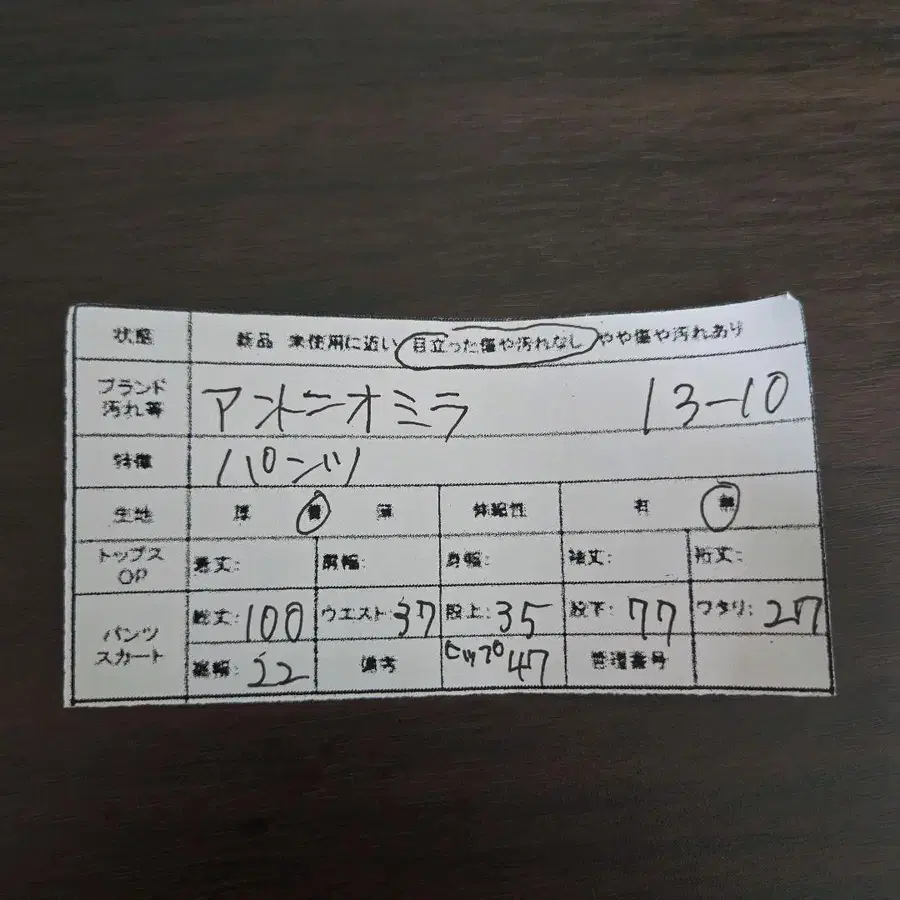 状態 新品 未使用に近い 目立った傷や汚れなし やや傷や汚れあり
ブランド 汚れ等 アントニオミラ 13-10
特徴 パンツ
生地 厚 普 薄 伸縮性 有 無
トップス OP 着丈: 肩幅: 身幅: 袖丈: 裄丈:
パンツ スカート 総丈:100 ウエスト:37 股上:35 股下:77 ワタリ:27
裾幅:22 備考 ヒップ47 管理番号